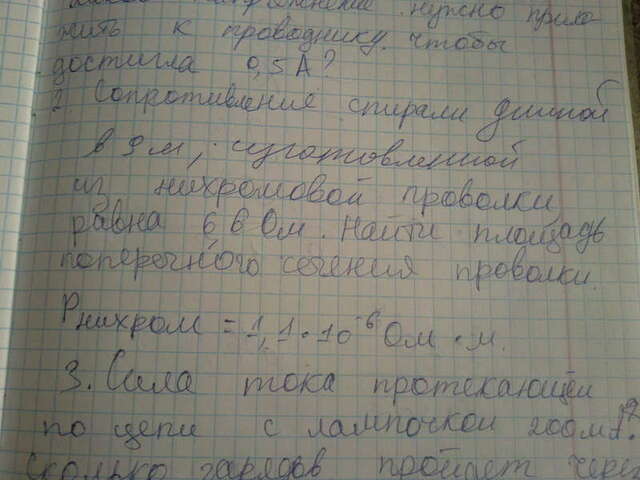 нужно прило
жить к проводнику, чтобы
достигла 0,5 А?
2. Сопротивление спирали длиной
в 9 м, изготовленной
из нихромовой проволки
равна 66 Ом. Найти площадь
поперечного сечения проволки.
Рнихром = 1,1 · 10⁻⁶ Ом · м.
3. Сила тока протекающей
по цепи с лампочкой 200 мА.
сколько зарядов пройдет через